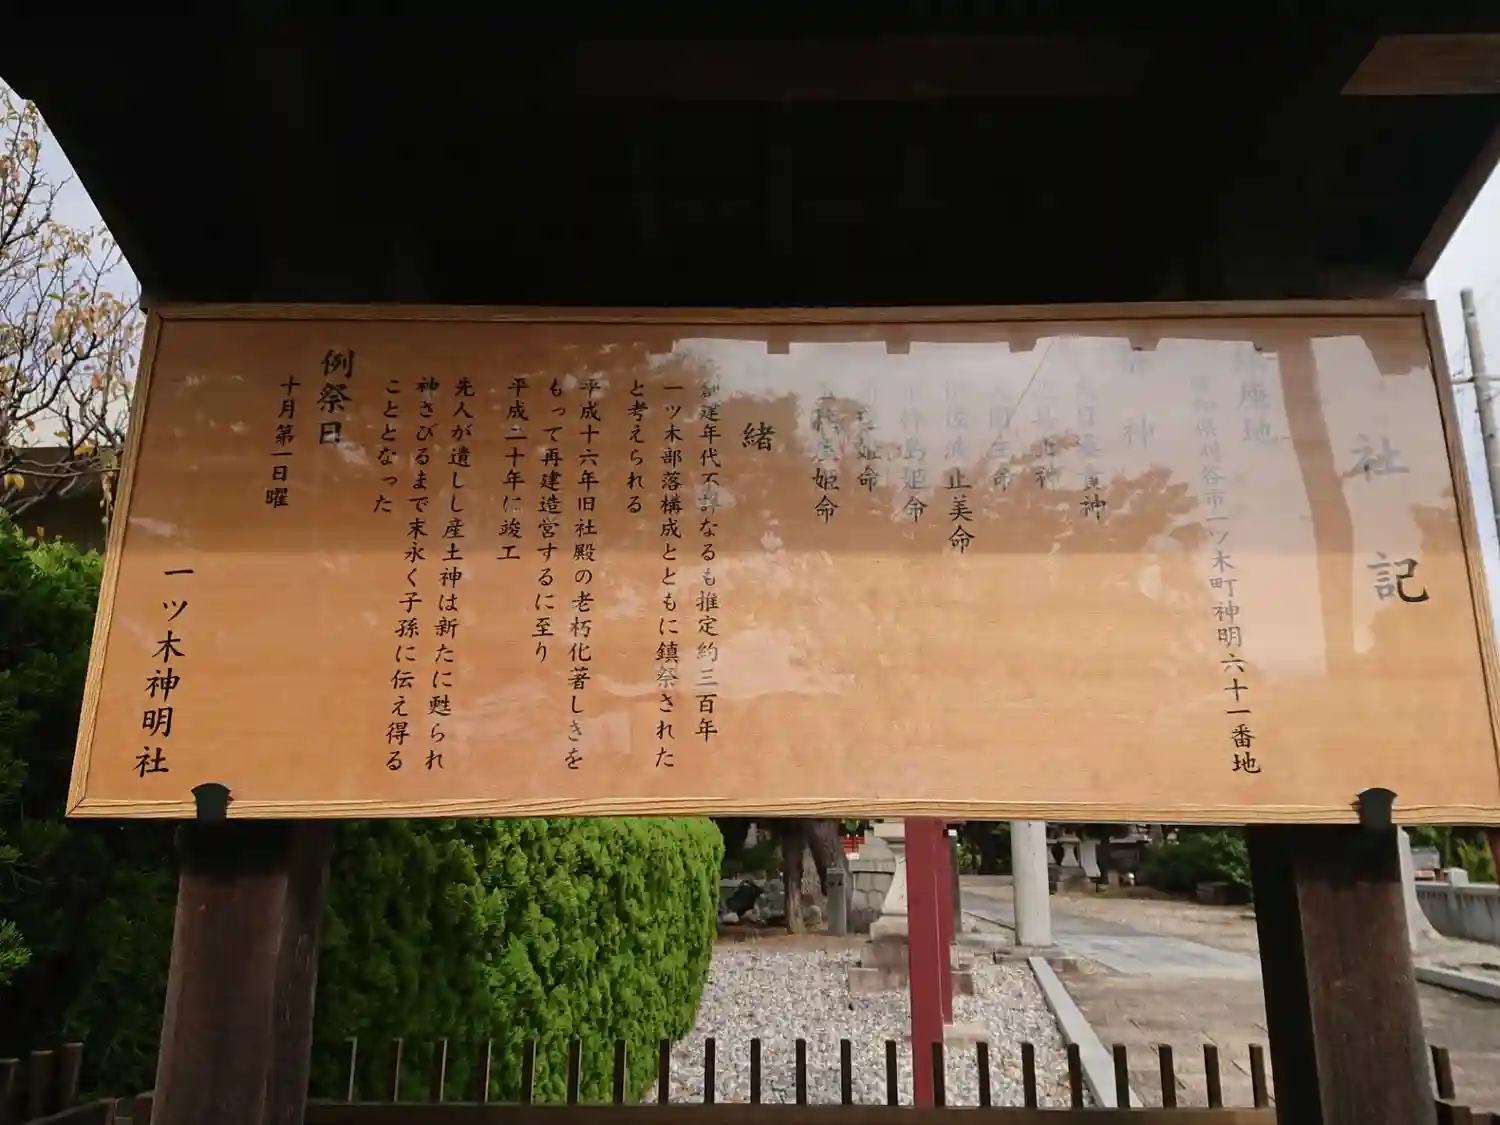 社記
座地
県刈谷市一ツ木町神明六十一番地
神
神
神
生命
止美命
島姫命
姫命
姫命
緒
創建年代不詳なるも推定約三百年
一ツ木部落構成とともに鎮祭された
と考えられる
平成十六年旧社殿の老朽化著しきを
もって再建造営するに至り
平成二十年に竣工
先人が遺しし産土神は新たに甦られ
神さびるまで末永く子孫に伝え得る
こととなった
例祭日
十月第一日曜
一ツ木神明社